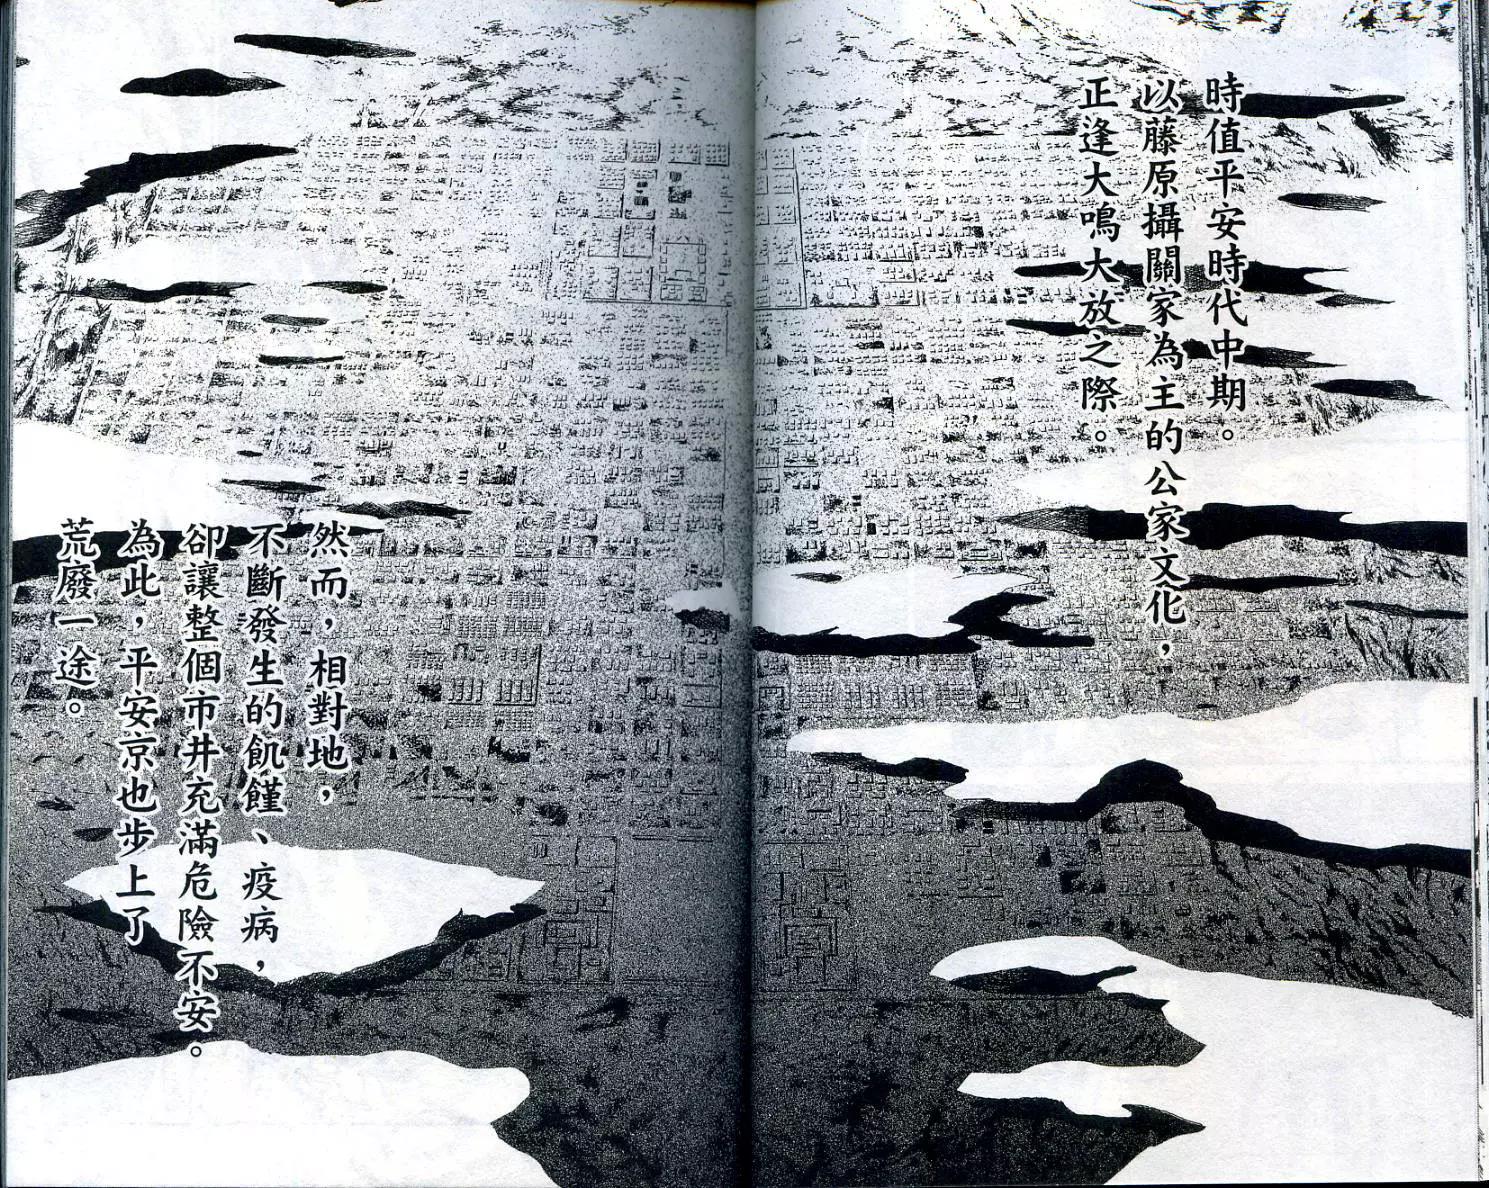 時值平安時代中期。
以藤原攝關家為主的公家文化，
正逢大鳴大放之際。
然而，相對地，
不斷發生的飢饉、疫病，
卻讓整個市井充滿危險不安。
為此，平安京也步上了
荒廢一途。